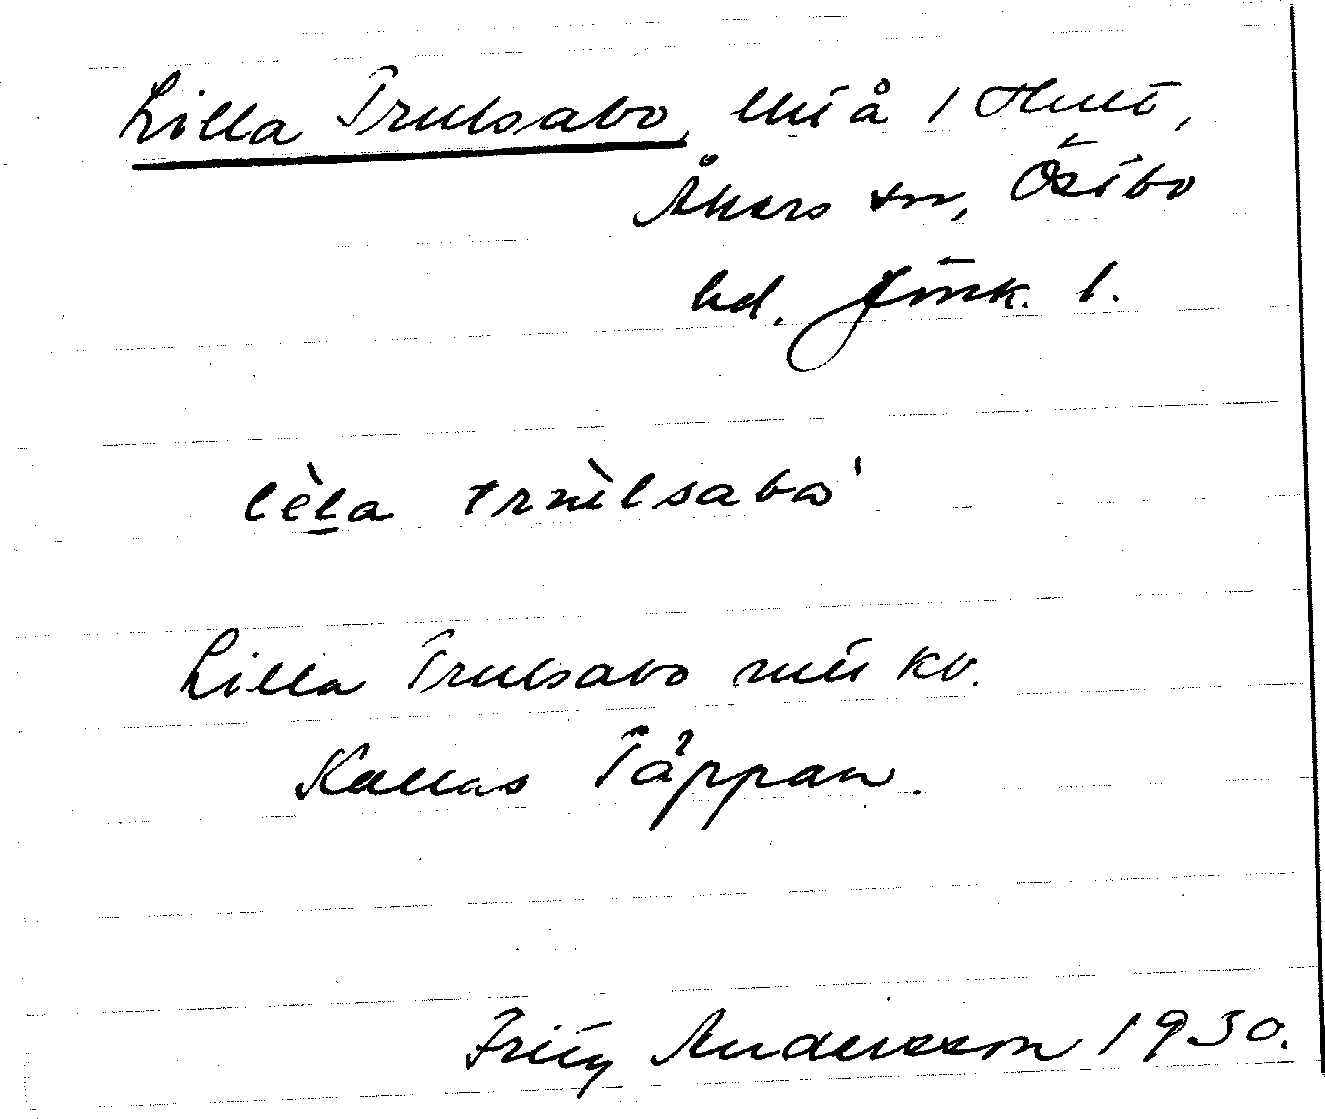 Lilla Trulsabo, utå i Hult,
Åkers sn, Östbo
hd. Jönk. l.
lèḻa trùlsabo'
Lilla Trulsabo
Kallas Täppan.
Fritz Andersson 1930.